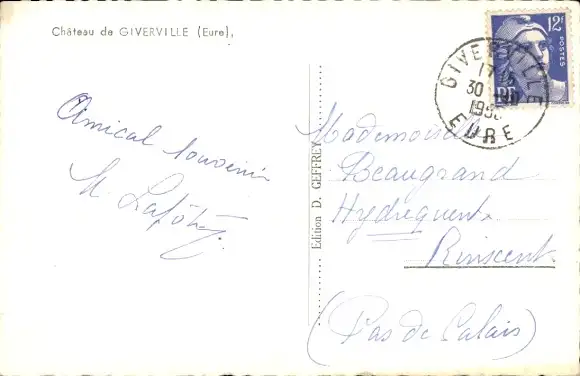 Château de GIVERVILLE (Eure),
Amical souvenir
M. 
Edition D. GEFFREY
12F
POSTES
RF
GIVERVILLE
17
30
EURE
Mademoiselle
Beaugrand
Hydrequent
Rinxent
(Pas de Calais)